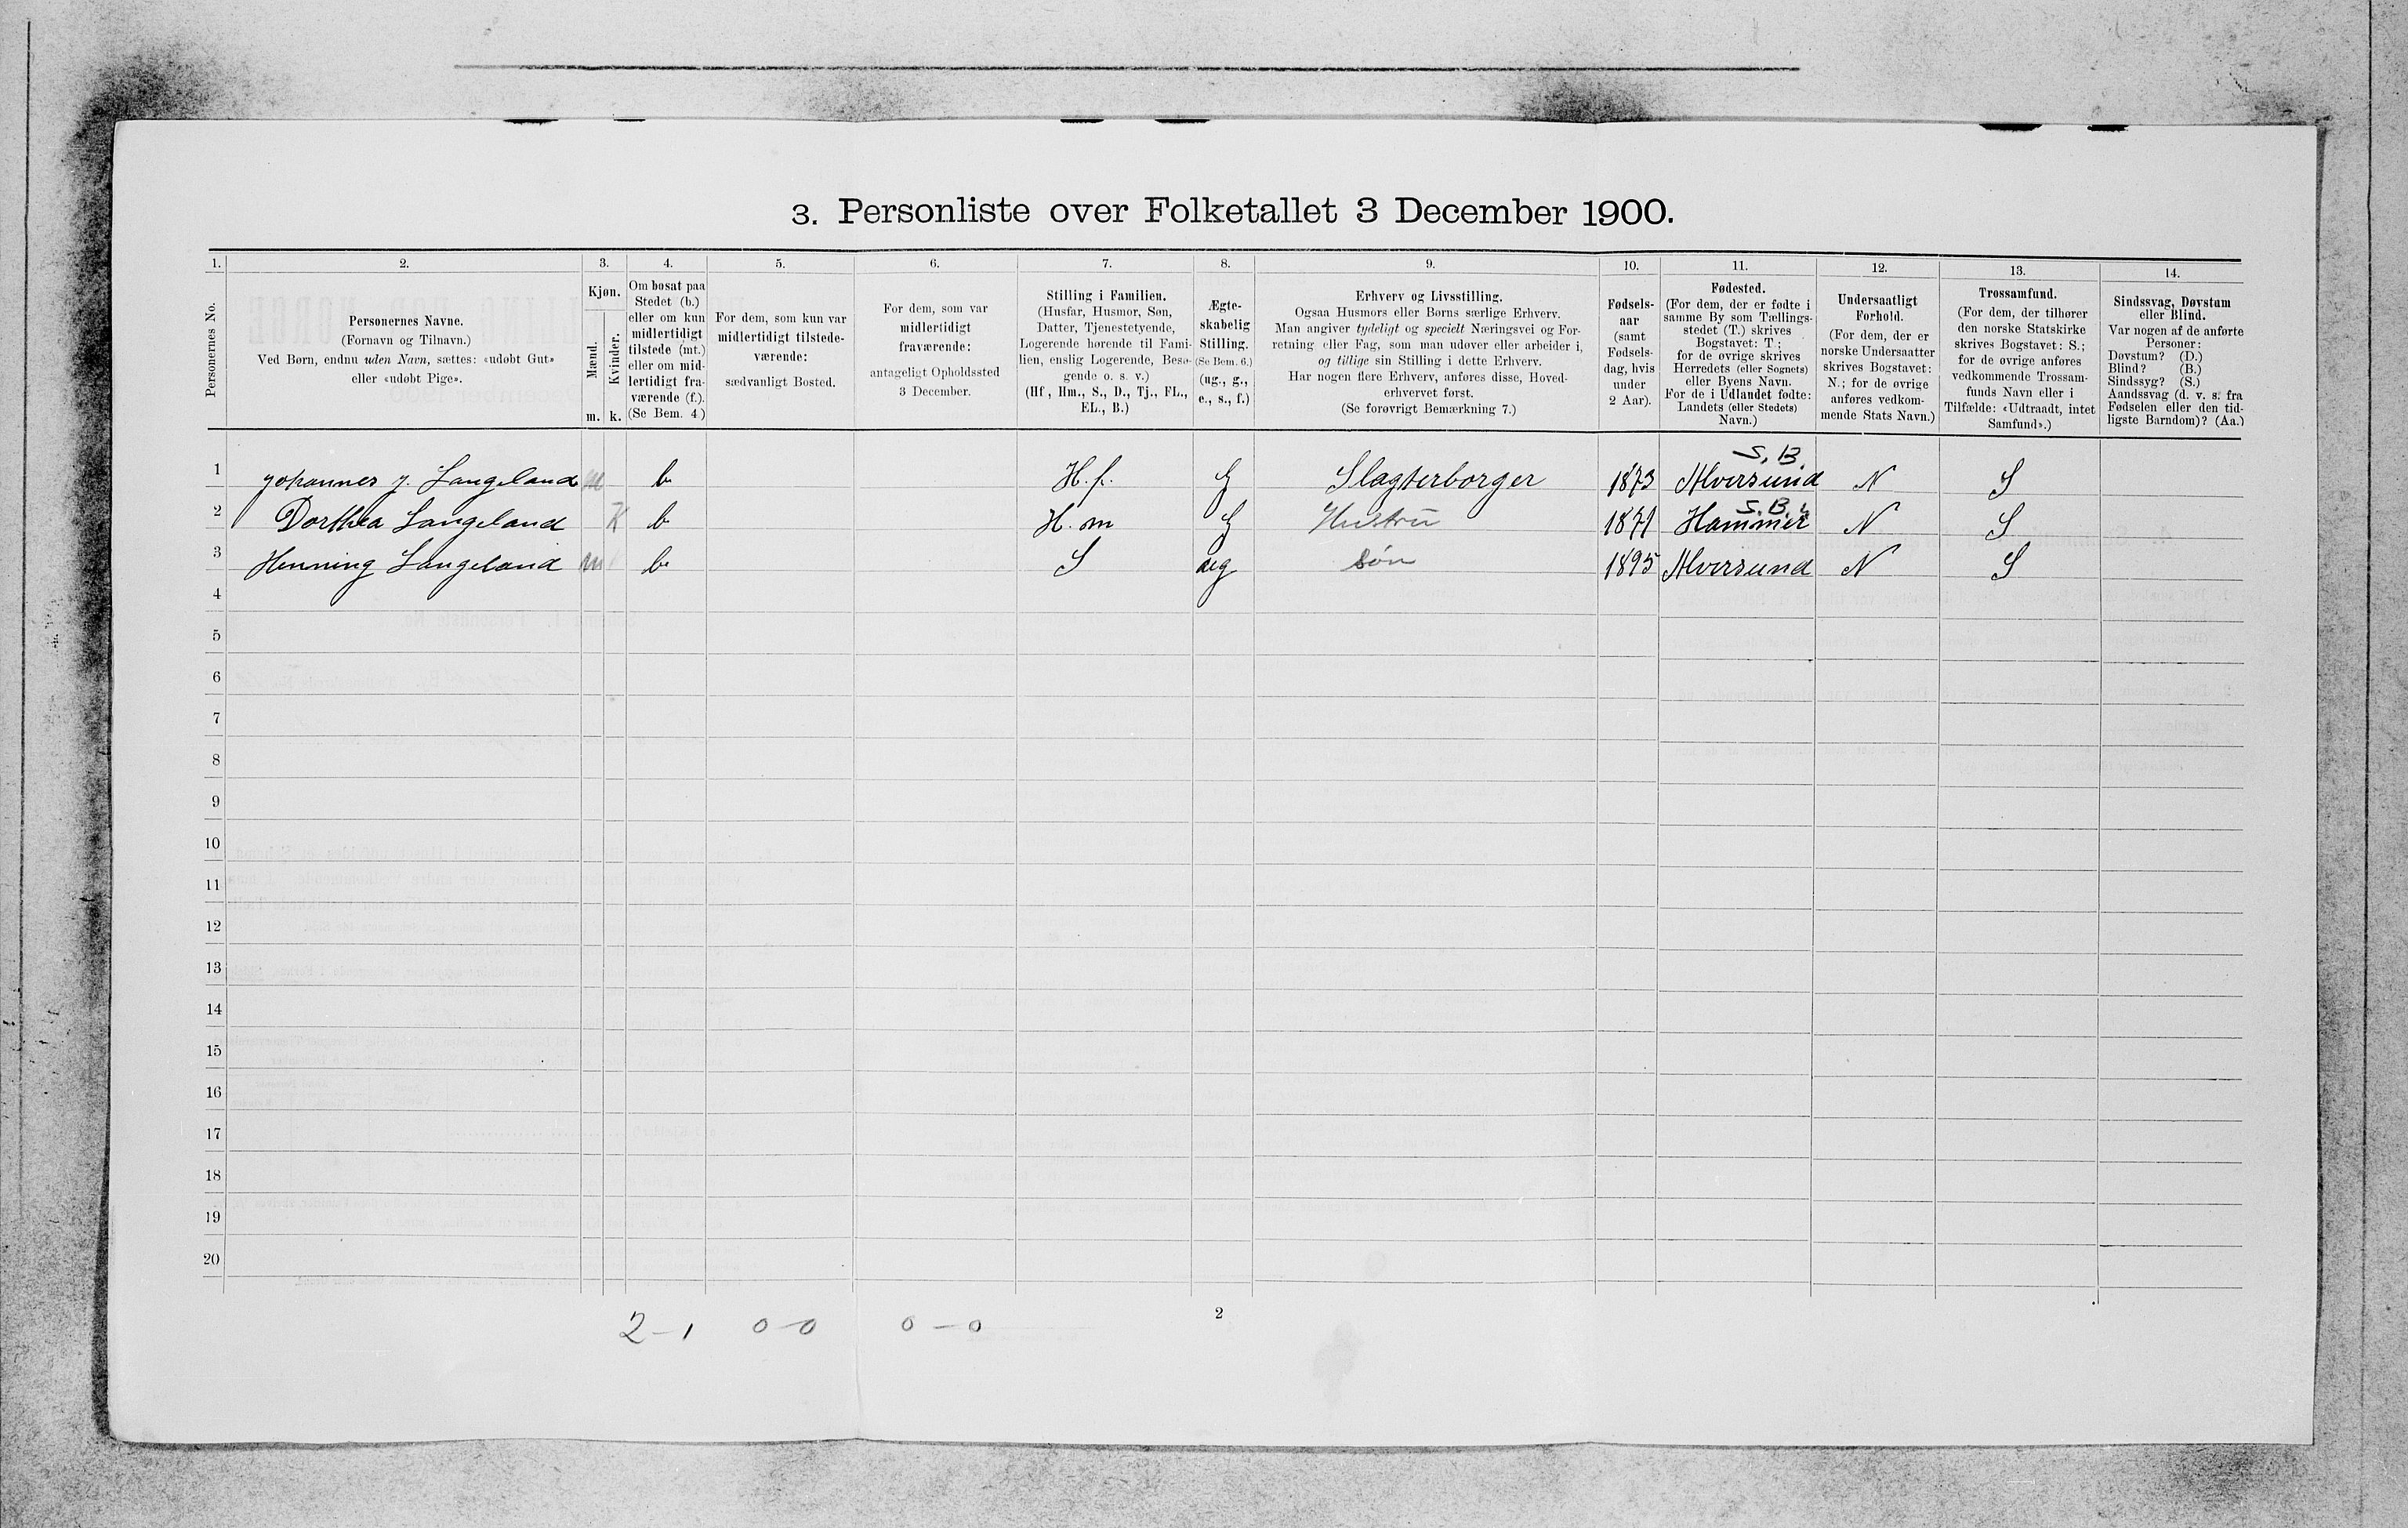 3. Personliste over Folketallet 3 December 1900.
1. 2. 3. 4. 5. 6. 7. 8. 9. 10. 11. 12. 13. 14.
Personernes No.
Personernes Navne.
(Fornavn og Tilnavn.)
Ved Børn, endnu uden Navn, sættes: «udøbt Gut»
eller «udøbt Pige».
Kjøn.
Mænd.
Kvinder.
m. k.
Om bosat paa
Stedet (b.)
eller om kun
midlertidigt
tilstede (mt.)
eller om mid-
lertidigt fra-
værende (f.).
(Se Bem. 4.)
For dem, som kun var
midlertidigt tilstede-
værende:
sædvanligt Bosted.
For dem, som var
midlertidigt
fraværende:
antageligt Opholdssted
3 December.
Stilling i Familien.
(Husfar, Husmor, Søn,
Datter, Tjenestetyende,
Logerende hørende til Fami-
lien, enslig Logerende, Besø-
gende o. s. v.)
(Hf., Hm., S., D., Tj., FL.,
EL., B.)
Ægte-
skabelig
Stilling.
(Se Bem. 6.)
(ug., g.,
e., s., f.)
Erhverv og Livsstilling.
Ogsaa Husmors eller Børns særlige Erhverv.
Man angiver tydeligt og specielt Næringsvei og For-
retning eller Fag, som man udøver eller arbeider i,
og tillige sin Stilling i dette Erhverv.
Har nogen flere Erhverv, anføres disse, Hoved-
erhvervet først.
(Se forøvrigt Bemærkning 7.)
Fødsels-
aar
(samt
Fødsels-
dag, hvis
under
2 Aar).
Fødested.
(For dem, der er fødte i
samme By som Tællings-
stedet (T.) skrives
Bogstavet: T.;
for de øvrige skrives
Herredets (eller Sognets)
eller Byens Navn.
For de i Udlandet fødte:
Landets (eller Stedets)
Navn.)
Undersaatligt
Forhold.
(For dem, der er
norske Undersaatter
skrives Bogstavet:
N.; for de øvrige
anføres vedkom-
mende Stats Navn.)
Trossamfund.
(For dem, der tilhører
den norske Statskirke
skrives Bogstavet: S.;
for de øvrige anføres
vedkommende Trossam-
funds Navn eller i
Tilfælde: «Udtraadt, intet
Samfund».)
Sindssvag, Døvstum
eller Blind.
Var nogen af de anførte
Personer:
Døvstum? (D.)
Blind? (B.)
Sindssyg? (S.)
Aandssvag (d. v. s. fra
Fødselen eller den tid-
ligste Barndom)? (Aa.)
S. B.
1 Johannes J. Langeland m b H. f. g Slagterborger 1873 Alversund N S
S. B.
2 Dorthea Langeland K b H. m g Hustru 1871 Hammer N S
3 Henning Langeland m b S ug søn 1895 Alversund N S
4
5
6
7
8
9
10
11
12
13
14
15
16
17
18
19
20
2
2-1 0-0 0-0